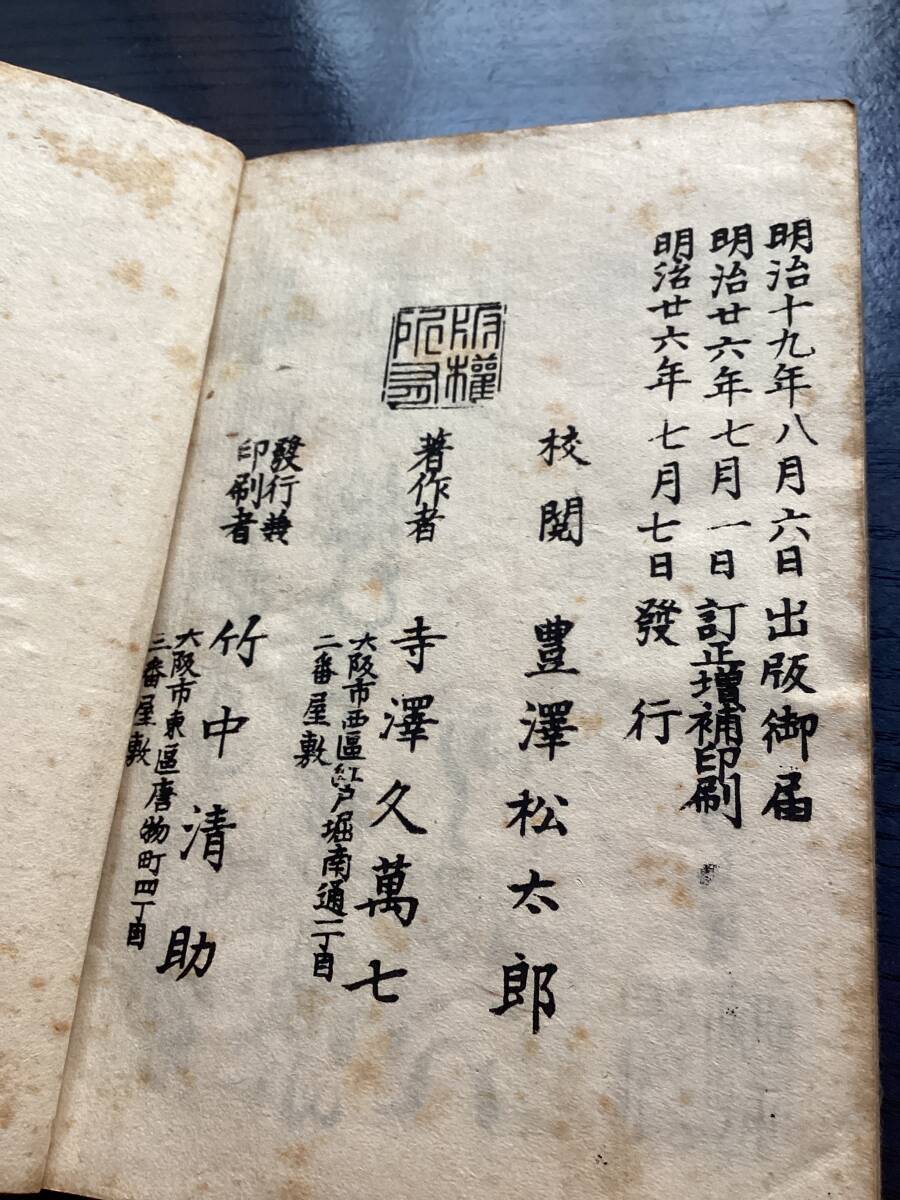 明治十九年八月六日出版御届
明治廿六年七月一日訂正增補印刷
明治廿六年七月七日發行
版權所有
校閲 豊澤松太郎
著作者 寺澤久萬七
大阪市西區江戸堀南通一丁目
二番屋敷
發行兼
印刷者 竹中清助
大阪市東區唐物町四丁目
三番屋敷